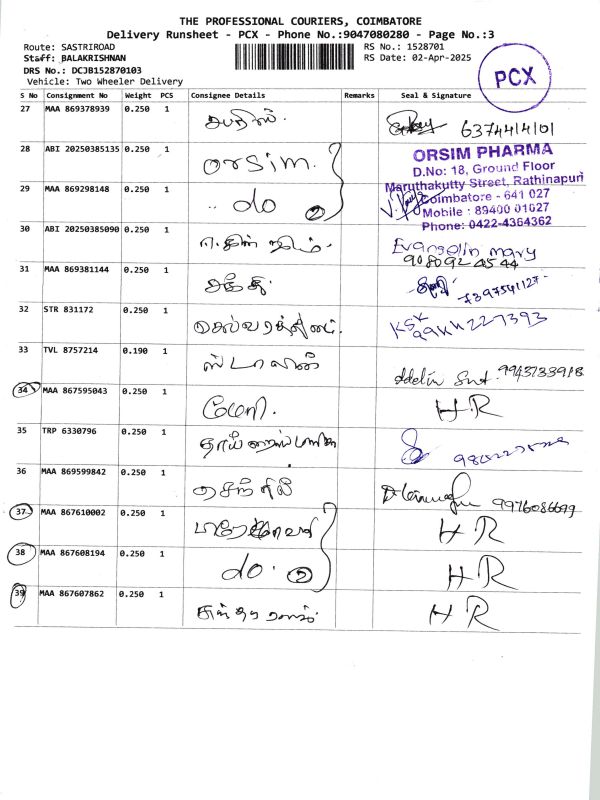 THE PROFESSIONAL COURIERS, COIMBATORE
Delivery Runsheet - PCX - Phone No.:9047080280 - Page No.:3
Route: SASTRIROAD
RS No.: 1528701
Staff: BALAKRISHNAN
RS Date: 02-Apr-2025
DRS No.: DCJB152870103
Vehicle: Two Wheeler Delivery
PCX
S No Consignment No Weight PCS Consignee Details Remarks Seal & Signature
27 MAA 869378939 0.250 1 6374414101
28 ABI 20250385135 0.250 1 orsim.
ORSIM PHARMA
D.No: 18, Ground Floor
Maruthakutty Street, Rathinapuri
Coimbatore - 641 027
Mobile : 89400 01027
Phone: 0422-4364362
29 MAA 869298148 0.250 1 .. do 2
30 ABI 20250385090 0.250 1 Evangelin mary
9080924544
31 MAA 869381144 0.250 1 சக்தி 7397541127
32 STR 831172 0.250 1 செல்வரத்தினம். KSK
33 TVL 8757214 0.190 1 ஸ்டாலின் 9943733918
34 MAA 867595043 0.250 1 மேரி. HR
35 TRP 6330796 0.250 1
36 MAA 869599842 0.250 1 செந்தில் 9976086699
37 MAA 867610002 0.250 1 HR
38 MAA 867608194 0.250 1 do. 2 HR
39 MAA 867607862 0.250 1 HR